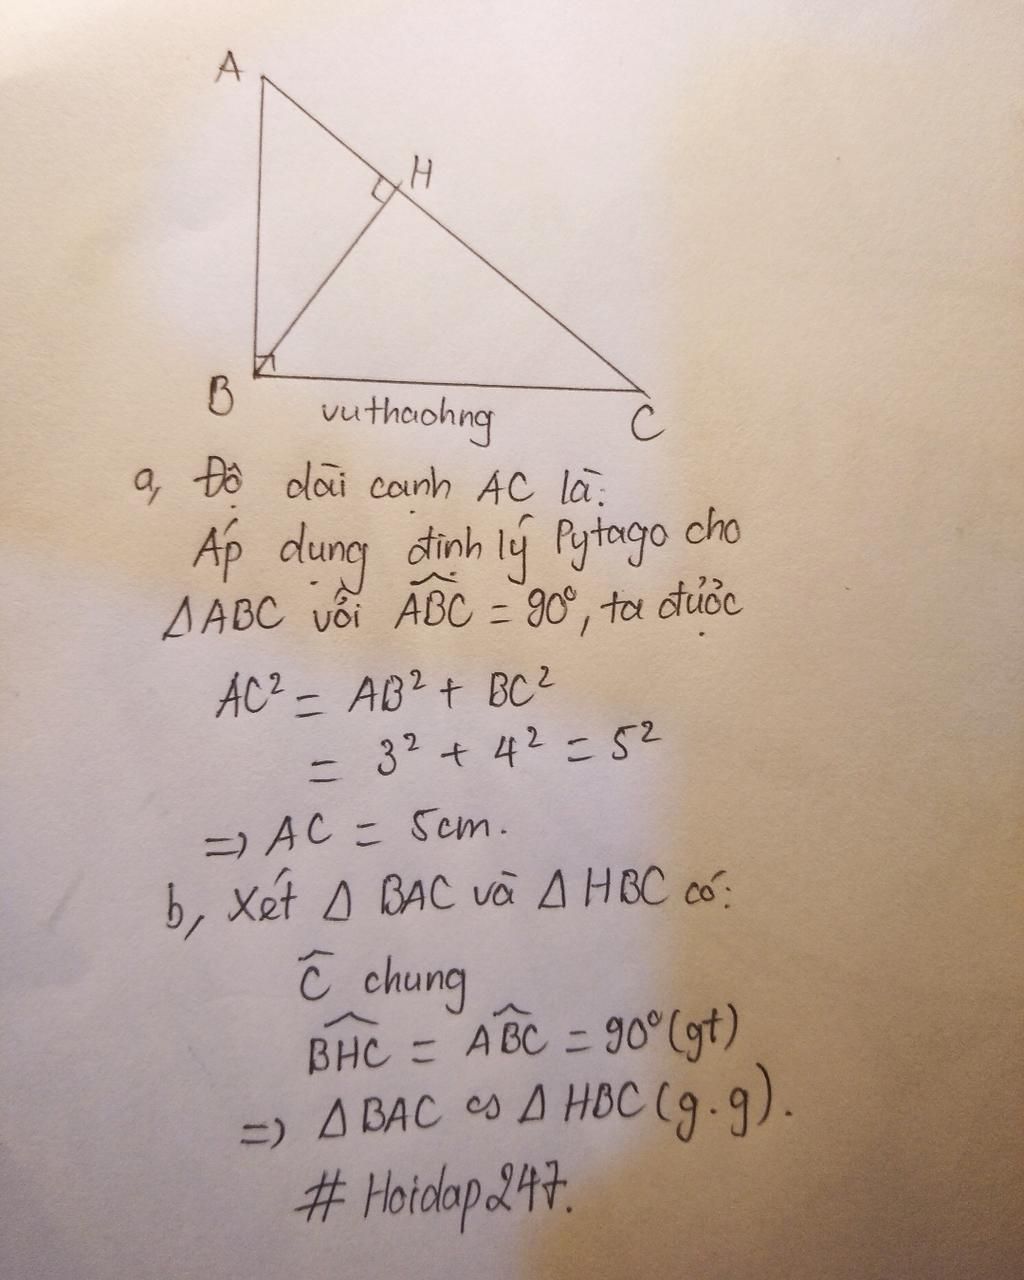 A
H
B
C
vuthaohng
a, Độ dài cạnh AC là:
Áp dụng định lý Pytago cho
ΔABC với \widehat{ABC} = 90°, ta được
AC² = AB² + BC²
= 3² + 4² = 5²
=> AC = 5cm.
b, Xét Δ BAC và Δ HBC có:
\widehat{C} chung
\widehat{BHC} = \widehat{ABC} = 90° (gt)
=> Δ BAC ∽ Δ HBC (g.g).
# Hoidap247.